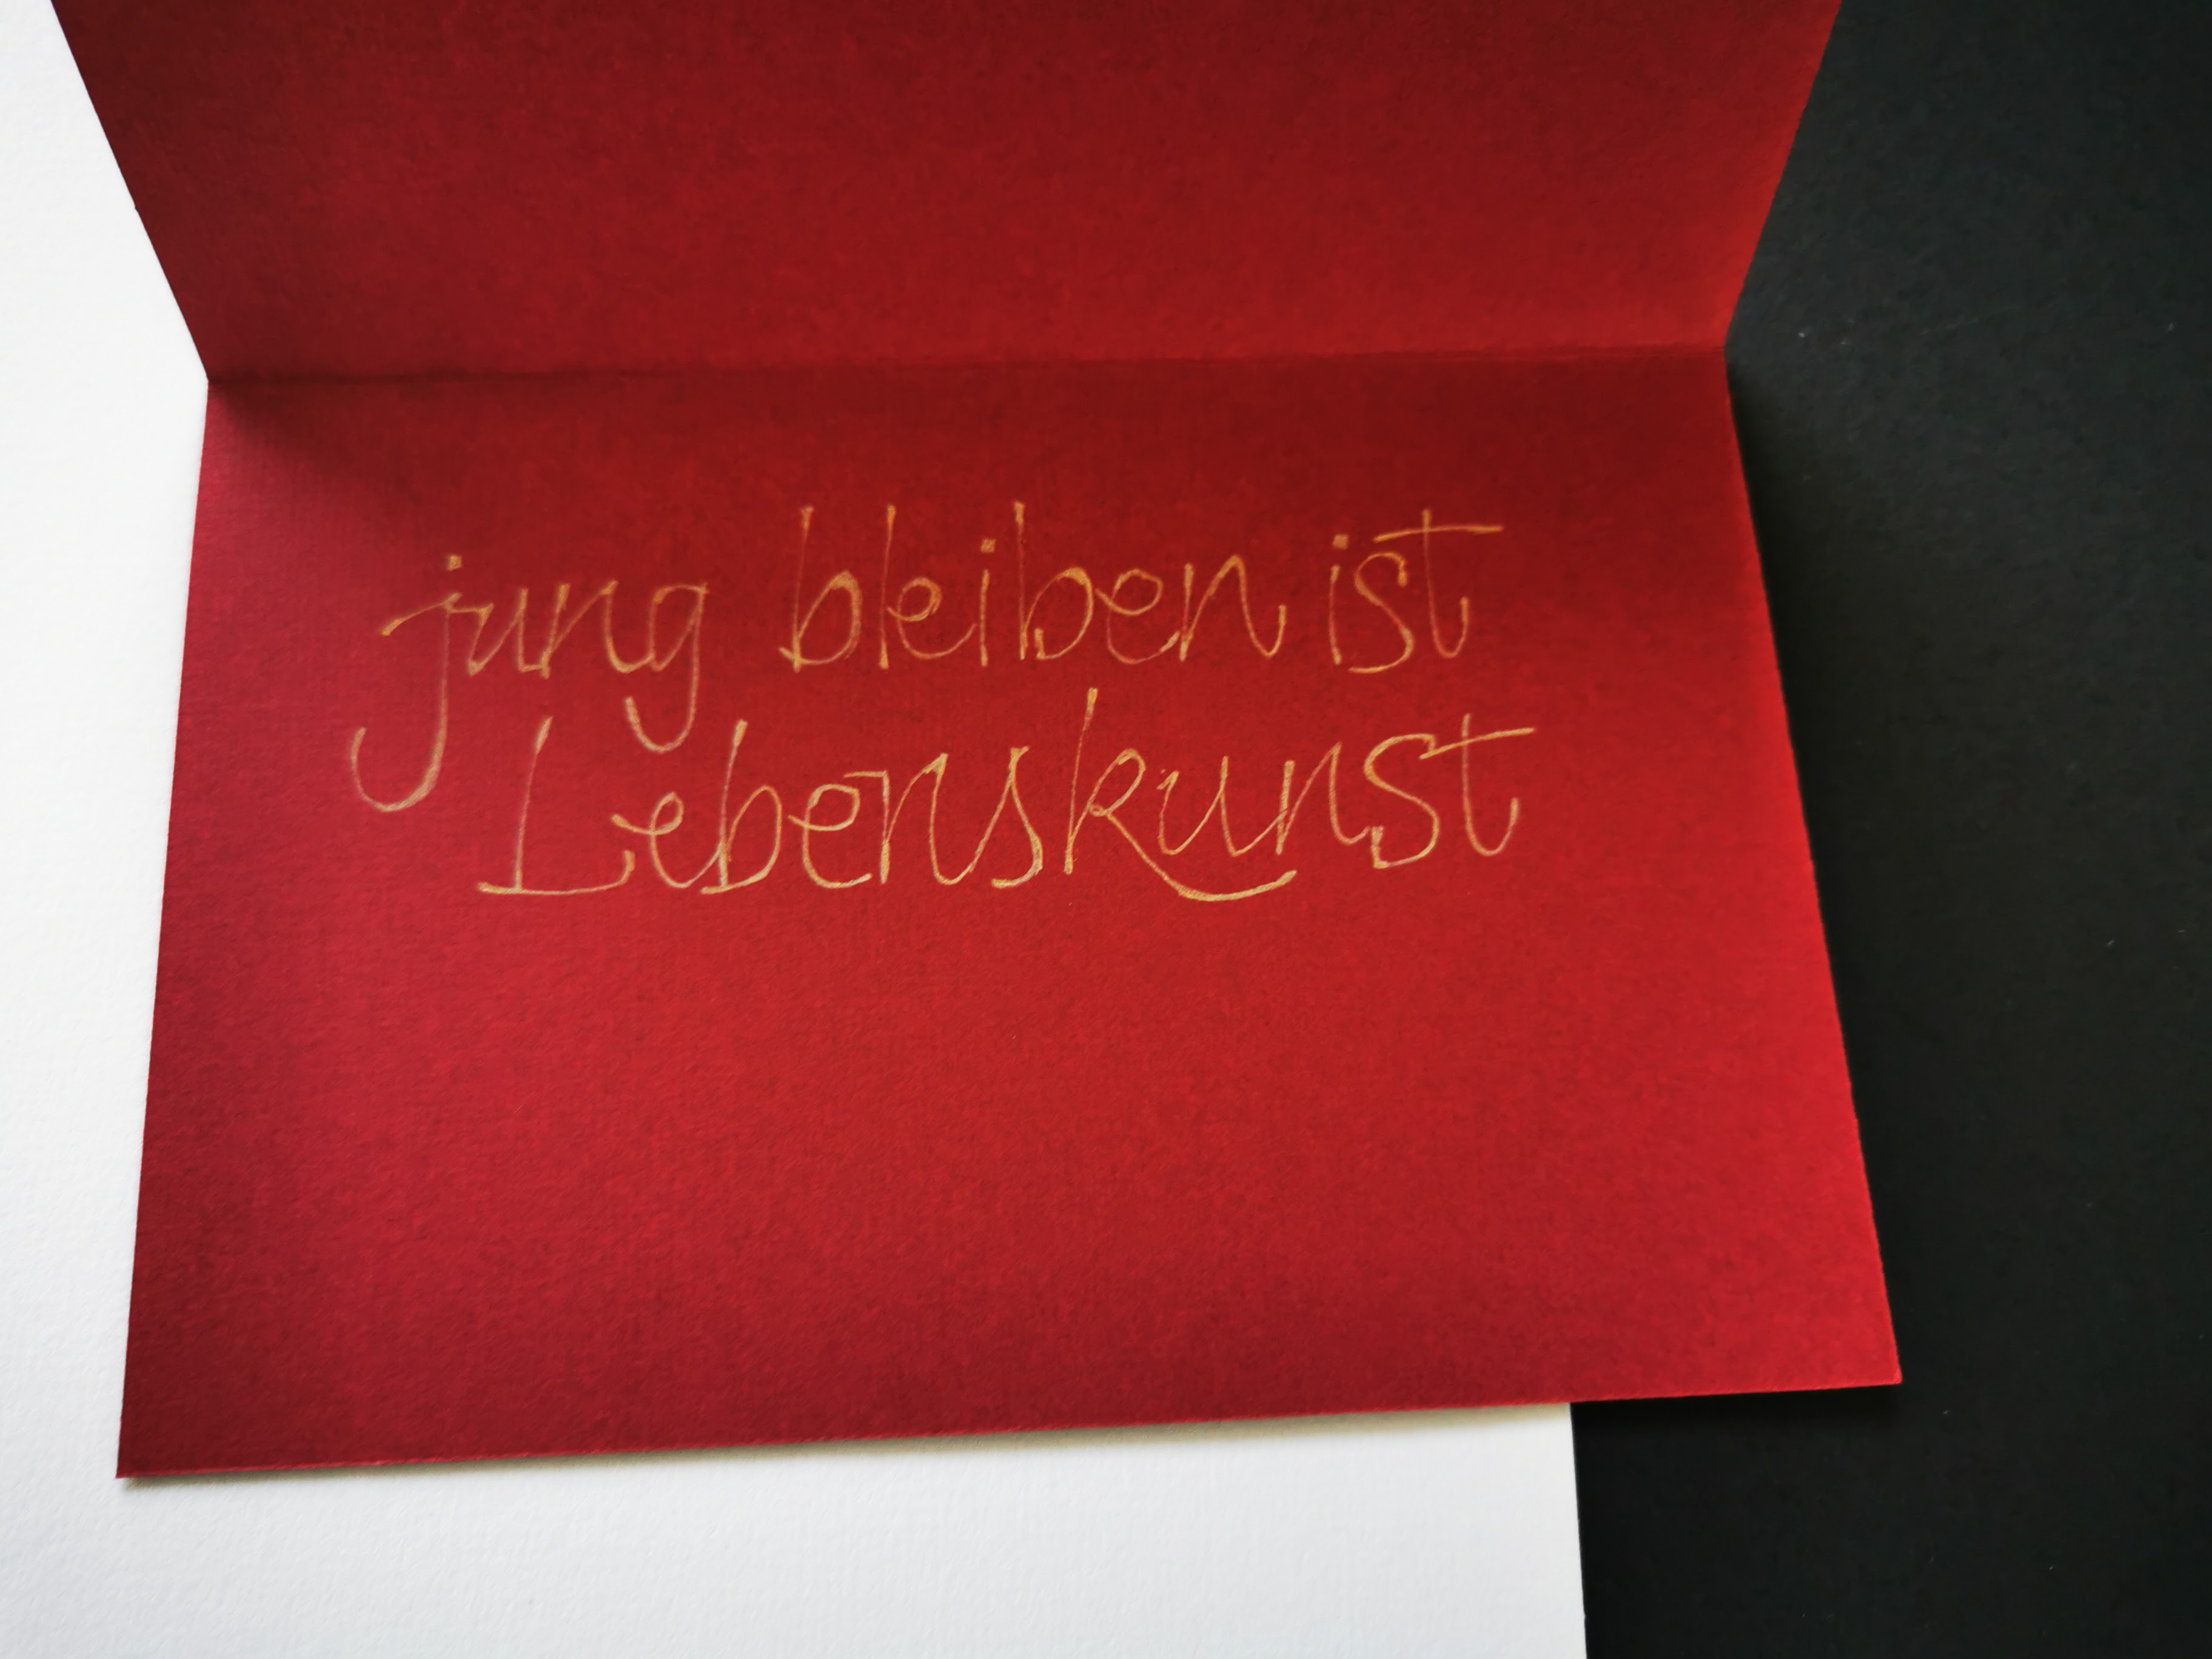 jung bleiben ist
Lebenskunst